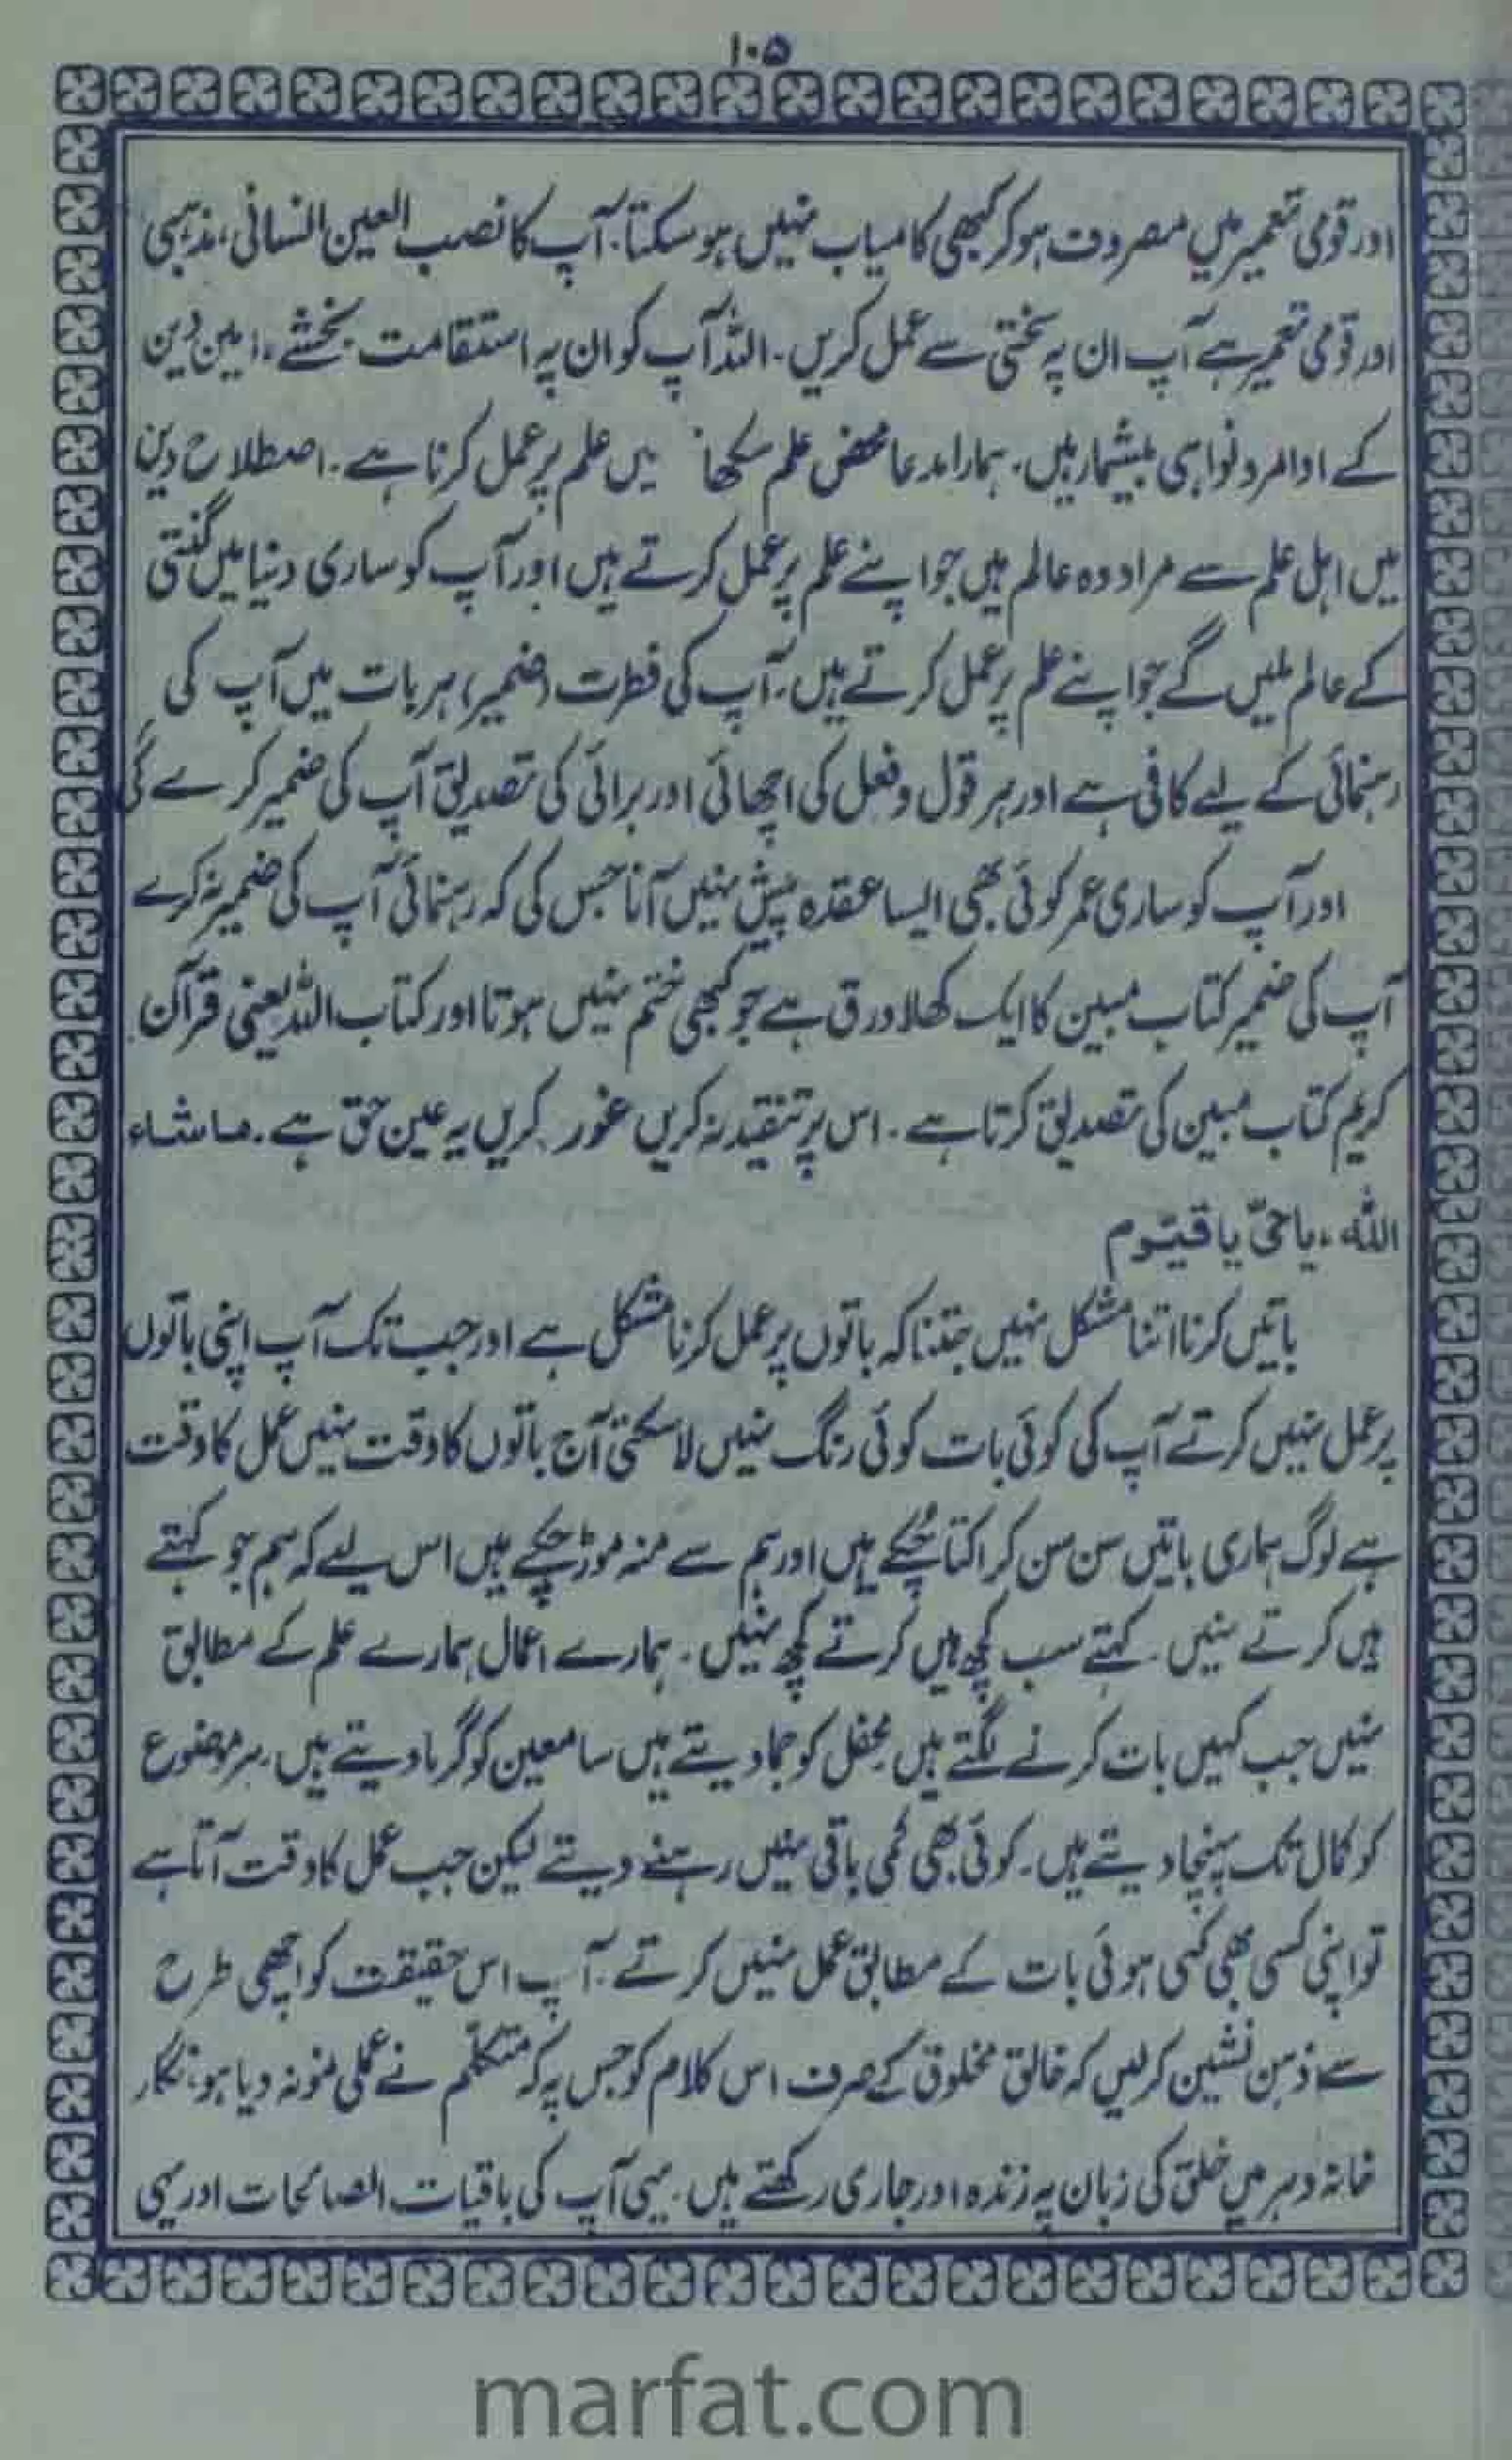 ۱۰۵
اور قومی تعمیر میں مصروف ہو کر کبھی کامیاب نہیں ہو سکتا۔ آپ کا نصب العین انسانی، مذہبی
اور قومی تعمیر ہے آپ ان پہ سختی سے عمل کریں۔ اللہ آپ کو ان پہ استقامت بخشے، امین دین
کے اوامر و نواہی بیشمار ہیں۔ ہمارا مدعا محض علم سکھا یں علم پر عمل کرنا ہے۔ اصطلاح دین
میں اہل علم سے مراد وہ عالم ہیں جو اپنے علم پر عمل کرتے ہیں اور آپ کو ساری دنیا میں گنتی
کے عالم ملیں گے جو اپنے علم پر عمل کرتے ہیں۔ آپ کی فطرت (ضمیر) ہر بات میں آپ کی
رہنمائی کے لیے کافی ہے اور ہر قول و فعل کی اچھائی اور برائی کی تصدیق آپ کی ضمیر کرے گی
اور آپ کو ساری عمر کوئی بھی ایسا عقدہ پیش نہیں آنا جس کی کہ رہنمائی آپ کی ضمیر نہ کرے
آپ کی ضمیر کتاب مبین کا ایک کھلا ورق ہے جو کبھی ختم نہیں ہوتا اور کتاب اللہ یعنی قرآن
کریم کتاب مبین کی تصدیق کرتا ہے۔ اس پر تنقید نہ کریں غور کریں یہ عین حق ہے۔ ماشاء
اللہ، یا حیّ یا قیّوم
باتیں کرنا اتنا مشکل نہیں جتنا کہ باتوں پر عمل کرنا مشکل ہے اور جب تک آپ اپنی باتوں
پر عمل نہیں کرتے آپ کی کوئی بات کوئی رنگ نہیں لا سکتی آج باتوں کا وقت نہیں عمل کا وقت
ہے لوگ ہماری باتیں سن سن کر اکتا چُکے ہیں اور ہم سے منہ موڑ چکے ہیں اس لیے کہ ہم جو کہتے
ہیں کرتے نہیں۔ کہتے سب کچھ ہیں کرتے کچھ نہیں۔ ہمارے اعمال ہمارے علم کے مطابق
نہیں جب کہیں بات کرنے لگتے ہیں محفل کو جما دیتے ہیں سامعین کو گرما دیتے ہیں، ہر موضوع
کو کمال تک پہنچا دیتے ہیں۔ کوئی بھی کمی باقی نہیں رہنے دیتے لیکن جب عمل کا وقت آتا ہے
تو اپنی کسی بھی کہی ہوئی بات کے مطابق عمل نہیں کرتے۔ آپ اس حقیقت کو اچھی طرح
سے ذہن نشین کر لیں کہ خالق مخلوق کے صرف اس کلام کو جس پہ کہ متکلّم نے عملی نمونہ دیا ہو، نگار
خانہ دہر میں خلق کی زبان پہ زندہ اور جاری رکھتے ہیں۔ یہی آپ کی باقیات الصالحات اور یہی
marfat.com